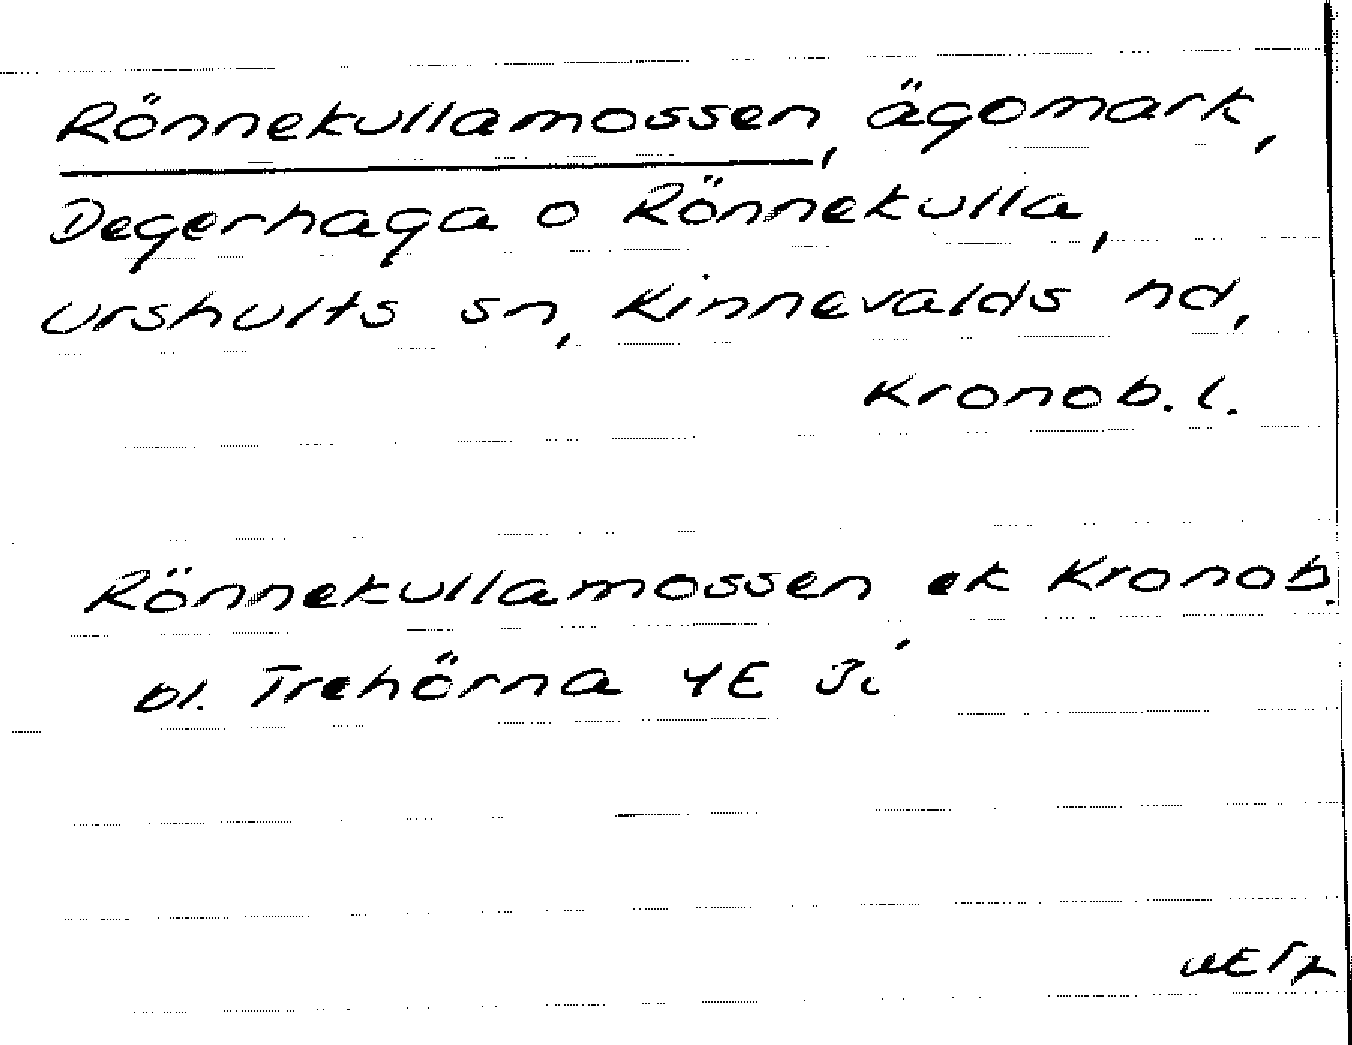 Rönnekullamossen, ägomark,
Degerhaga o Rönnekulla,
Urshults sn, Kinnevalds hd,
Kronob. l.
Rönnekullamossen ek Kronob.
bl. Trehörna 4E 3i